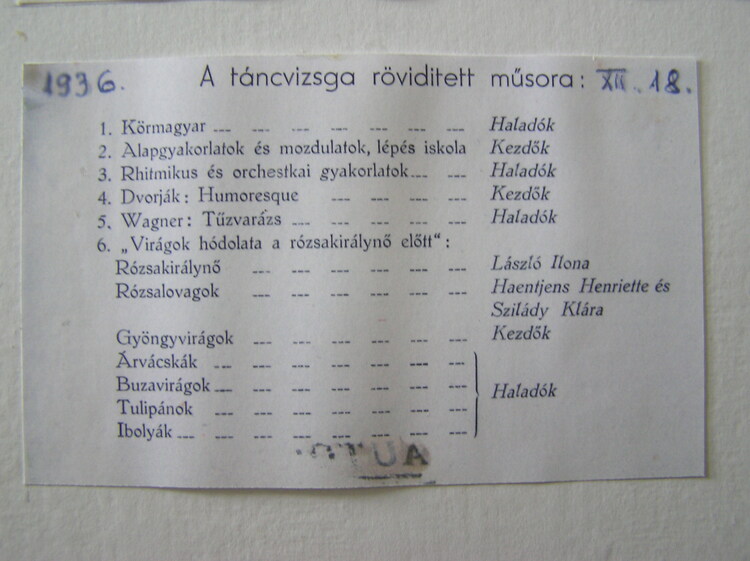 1936. A táncvizsga röviditett műsora: XII. 18.
1. Körmagyar --- --- --- --- --- --- --- Haladók
2. Alapgyakorlatok és mozdulatok, lépés iskola Kezdők
3. Rhitmikus és orchestkai gyakorlatok --- --- Haladók
4. Dvorják: Humoresque --- --- --- --- Kezdők
5. Wagner: Tűzvarázs --- --- --- --- --- Haladók
6. „Virágok hódolata a rózsakirálynő előtt":
Rózsakirálynő --- --- --- --- --- --- László Ilona
Rózsalovagok --- --- --- --- --- --- Haentjens Henriette és
Szilády Klára
Gyöngyvirágok --- --- --- --- --- --- Kezdők
Árvácskák --- --- --- --- --- --- ---
Buzavirágok --- --- --- --- --- --- --- Haladók
Tulipánok --- --- --- --- --- --- ---
Ibolyák --- --- --- --- --- --- --- ---